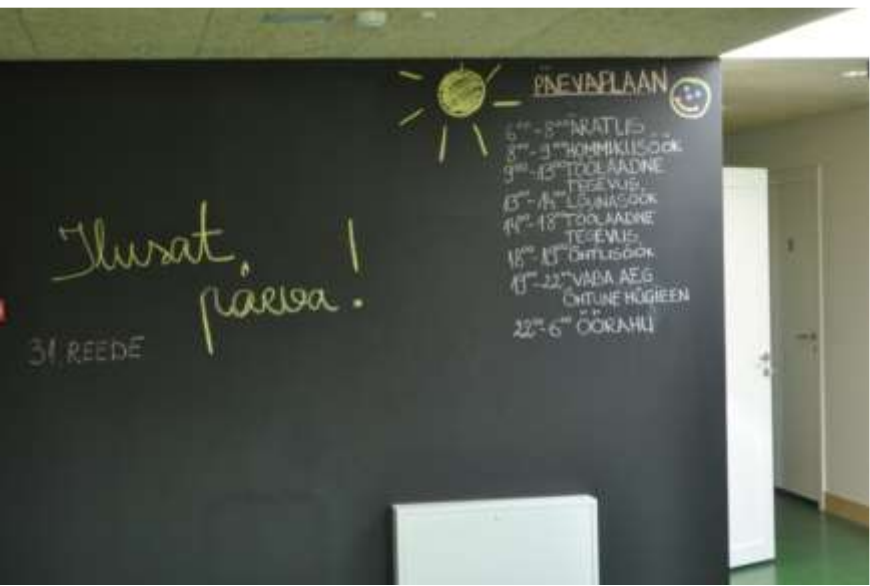 Ilusat
päeva!
31. REEDE
PÄEVAPLAAN
6⁰⁰-8⁰⁰ ÄRATUS
8⁰⁰-9⁰⁰ HOMMIKUSÖÖK
9⁰⁰-13⁰⁰ TÖÖLAADNE
TEGEVUS
13⁰⁰-14⁰⁰ LÕUNASÖÖK
14⁰⁰-18⁰⁰ TÖÖLAADNE
TEGEVUS
18⁰⁰-19⁰⁰ ÕHTUSÖÖK
19⁰⁰-22⁰⁰ VABA AEG
ÕHTUNE HÜGIEEN
22⁰⁰-6⁰⁰ ÖÖRAHU